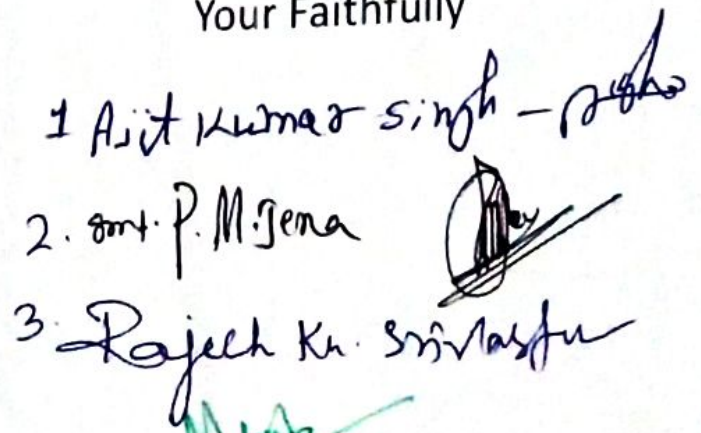 Your Faithfully
1 Ajit Kumar Singh -
2. Smt. P. M. Jena
3. Rajesh Kr. Srivastav